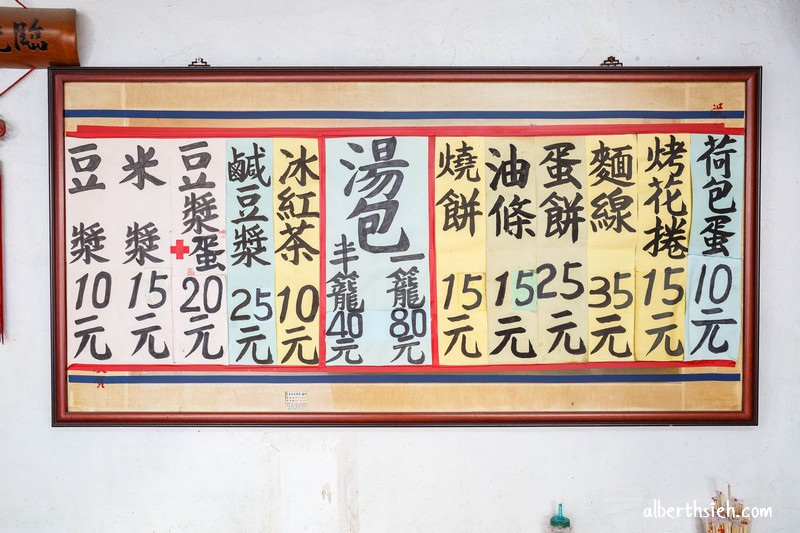 荷包蛋 10元
烤花捲 15元
麵線 35元
蛋餅 25元
油條 15元
燒餅 15元
湯包
一籠 80元
半籠 40元
冰紅茶 10元
鹹豆漿 25元
豆漿+蛋 20元
米漿 15元
豆漿 10元
alberthsieh.com